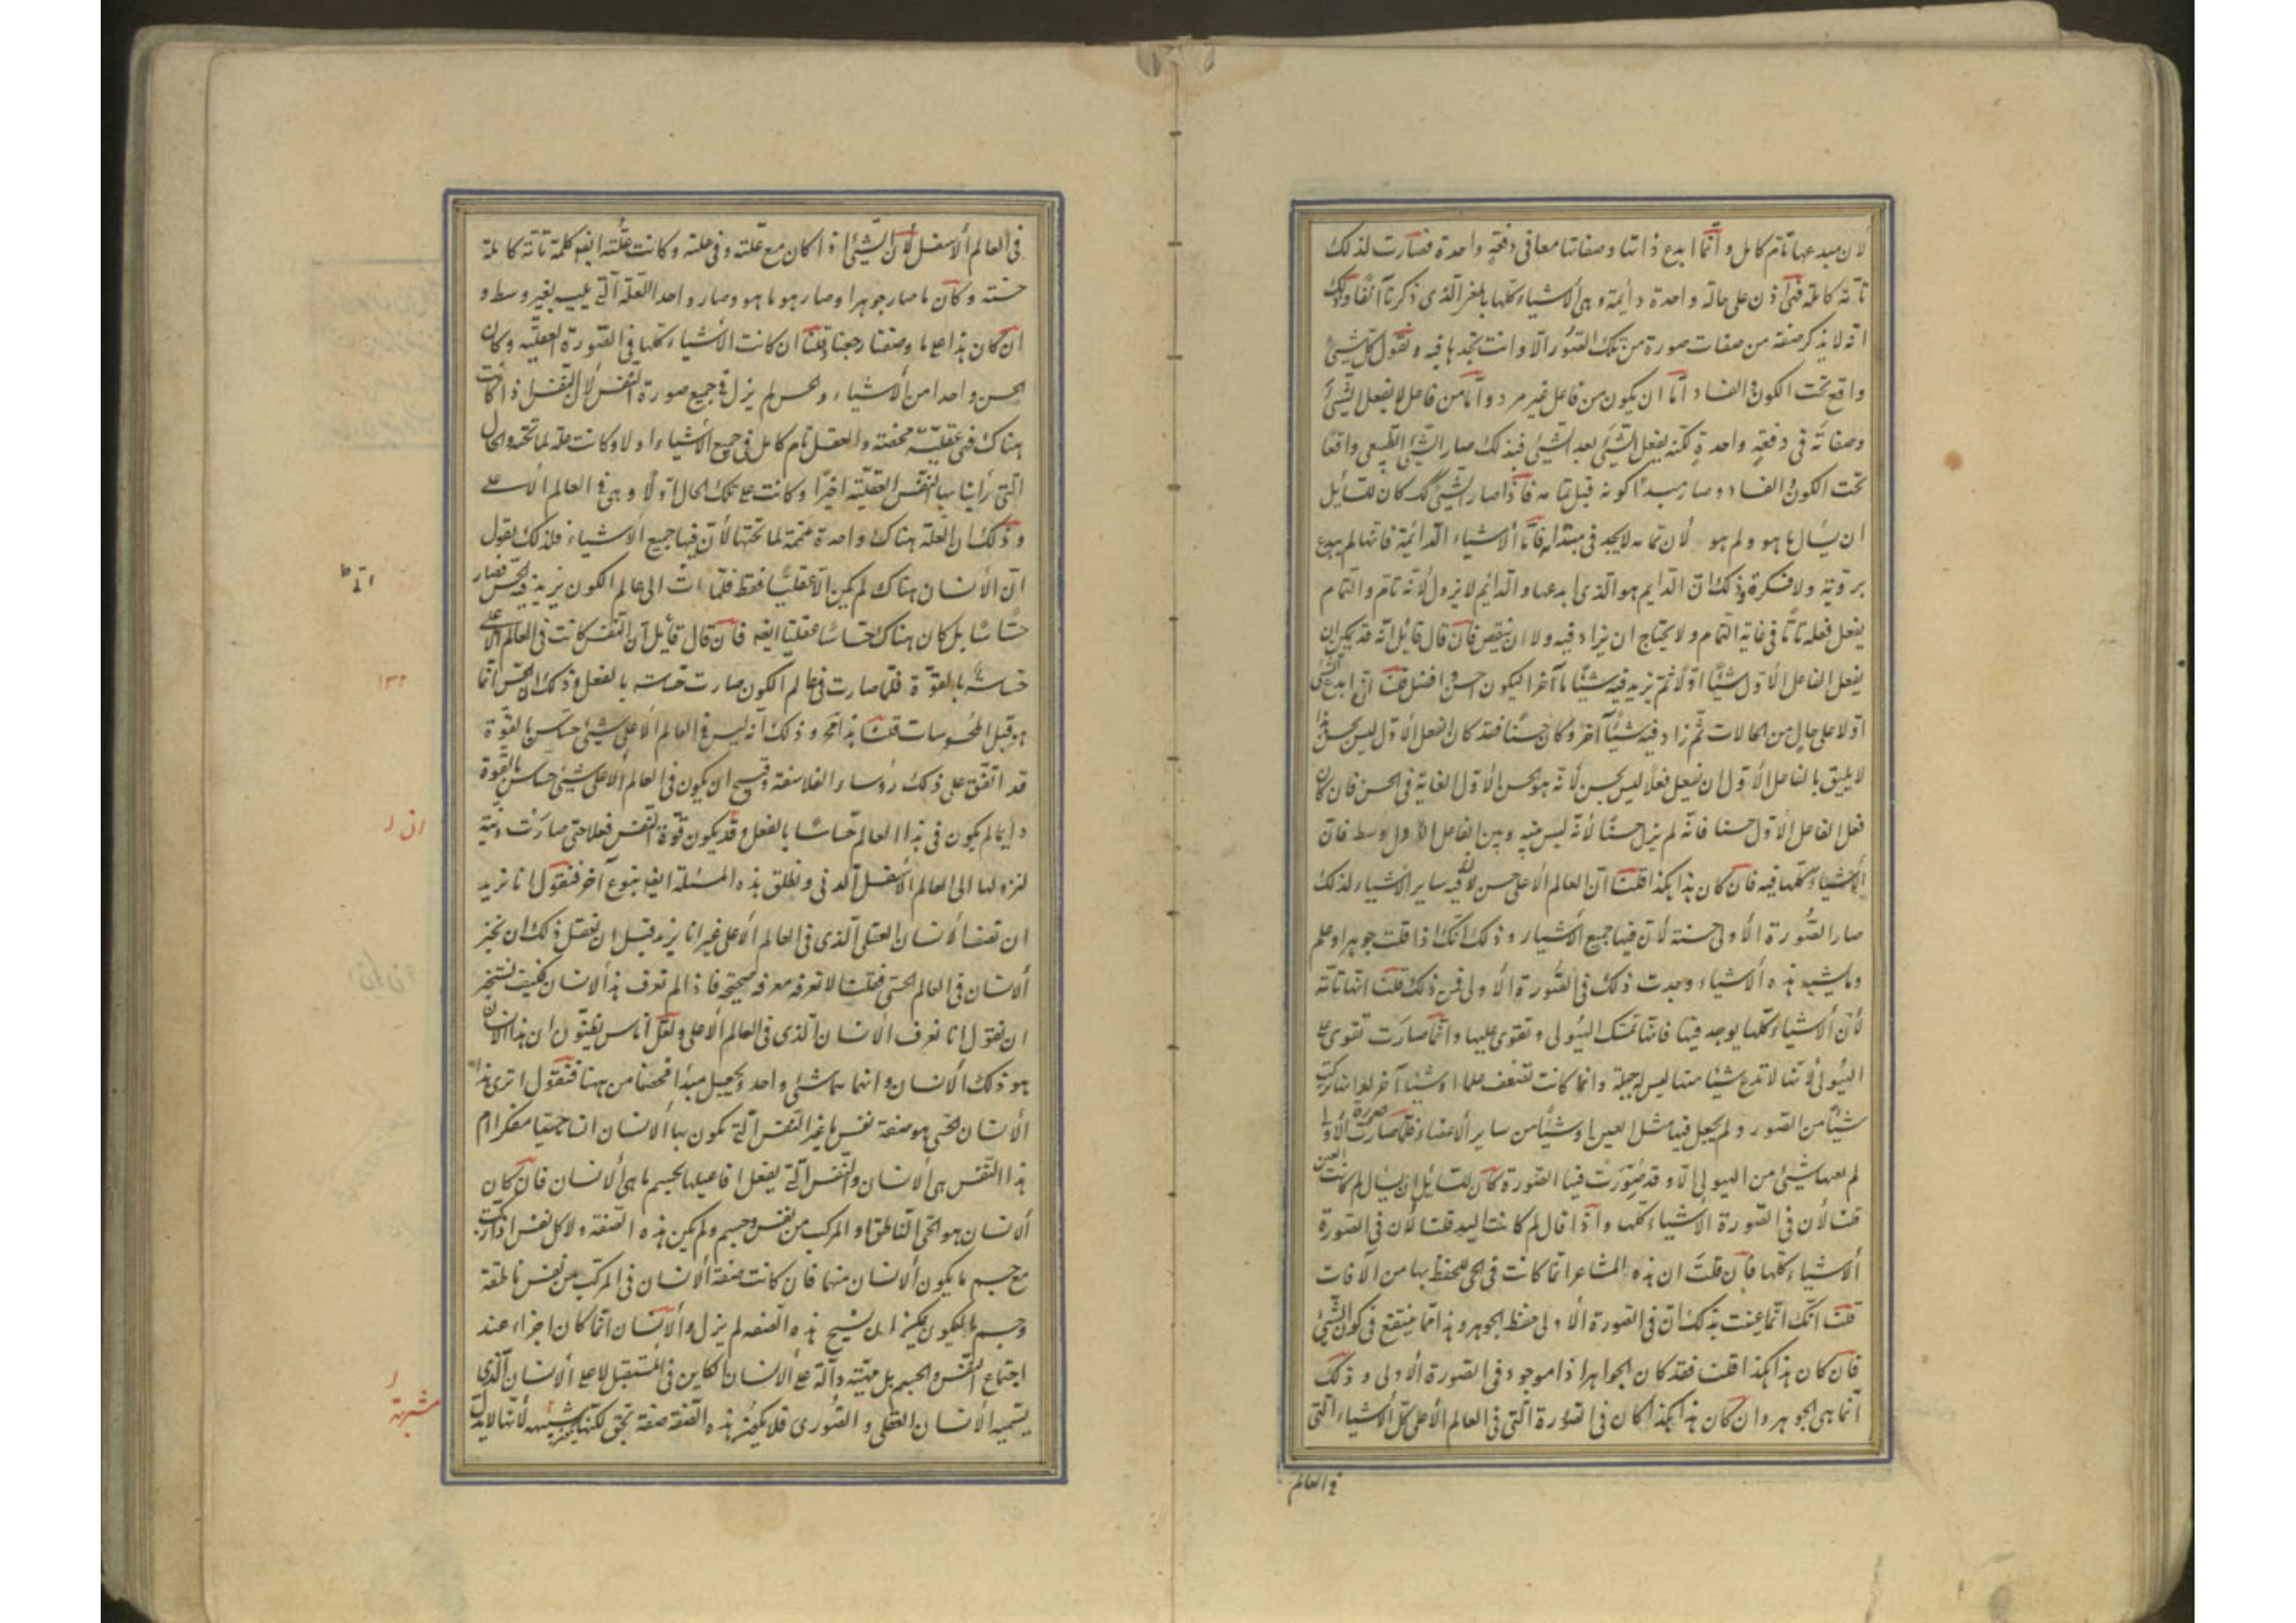 لأن مبدعها تام كامل وانما ابدع ذاتها وصفاتها معا فى دفعة واحدة فصارت لذلك
تامة كاملة فهى اذن على حالة واحدة دائمة وهى الأشياء كلها بالمعنى الذى ذكرنا آنفا وذلك
انه لا يذكر صفة من صفات صورة من تلك الصور الا وانت تجدها فيه ونقول كل شيئ
واقع تحت الكون والفساد اما ان يكون من فاعل غير مرو واما من فاعل لا يفعل الشيئ
وصفاته فى دفعة واحدة لكنه يفعل الشيئ بعد الشيئ فبذلك صار الشيئ الطبيعى واقعا
تحت الكون والفساد وصار مبدأ كونه قبل تمامه فاذا صار الشيئ كك كان للسايل
ان يسال ما هو ولم هو لان تمامه لا يجد فى مبتدائه فاما الأشياء الدائمة فانها لم يبدع
بروية ولا فكرة وذلك ان الدايم هو الذى ابدعها والدايم لا يزول لأنه تام والتمام
يفعل فعله تاما فى غاية التمام ولا يحتاج ان يزاد فيه ولا ان ينقص فان قال قائل انه قد يمكن ان
يفعل الفاعل الأول شيئا اولا ثم يزيد فيه شيئا ما آخر اليكون احسن وافضل قلنا ان ابدع الشئ
اولا على حال من الحالات ثم زاد فيه شيئا آخر وكان حسنا فقد كان الفعل الأول ليس بحسن وهذا
لا يليق بالفاعل الأول ان يفعل فعلا ليس بحسن لأنه هو الحسن الأول الغاية فى الحسن فان كان
فعل الفاعل الأول حسنا فانه لم يزل حسنا لأنه ليس بينه وبين الفاعل الأول وسط فان
الأشياء كلها فيه فان كان هذا هكذا قلنا ان العالم الأعلى حسن لأن فيه ساير الأشياء لذلك
صار الصورة الأولى حسنة لأن فيها جميع الأشياء وذلك انك اذا قلت جوهر او علم
وما يشبه هذه الأشياء وجدت ذلك فى الصورة الأولى فمن ذلك قلنا انها تامة
لأن الأشياء كلها يوجد فيها فانها تمسك الهيولى وتقوى عليها وانما صارت تقوى على
الهيولى لأنها لا تدع شيئا منها ليس له جبلة وانما كانت تضعف علما او شيئا آخر لو انها تركت
شيئا من الصور ولم يجعل فيها مثل العين او شيئا من ساير الأعضاء فلما صارت الصورة الأولى
لم يفتها شيئ من الهيولى الا وقد صورت فيها الصورة كان للسائل ان يسال لم كانت العين
قلنا لأن فى الصورة الأشياء كلها واذا قال لم كانت اليد قلنا لأن فى الصورة
الأشياء كلها فان قلت ان هذه المشاعر انما كانت فى الحى للحفظ بها من الآفات
قلنا انك انما عنيت بذلك ان فى الصورة الأولى حفظ الجوهر وهذا مما ينتفع فى كون الشيئ
فان كان هذا هكذا قلنا فقد كان الجواهر اذا موجود فى الصورة الأولى وذلك
انما هى الجوهر وان كان هذا هكذا كان فى الصورة التى فى العالم الأعلى كل الأشياء التى
فى العالم
فى العالم الأسفل لأن الشيئ اذا كان مع علته وفى علته وكانت علته ايضا كلمة تامة كاملة
حسنة وكان ما صار جوهرا وصار هو ما هو وصار واحدا للعلة التى يليه بغير وسط و
ان كان هذا على ما وصفنا رجعنا وقلنا ان كانت الأشياء كلها فى الصورة العقلية وكان
الحسن واحدا من الأشياء والحس لم يزل فى جميع صورة النفس لأن النفس اذا كانت
هناك فهى عقلية محضة والعقل تام كامل فى جميع الأشياء اولا وكانت علة لما تحته والحال
التى رأينا بها النفس العقلية اخيرا وكانت على تلك الحال اولا وهى فى العالم الأعلى
وذلك ان العلة هناك واحدة متممة لما تحتها لأن فيها جميع الأشياء فلذلك نقول
ان الأنسان هناك لم يكن الا عقليا فقط فلما اتى الى عالم الكون نزيد فيه الحس فصار
حساسا بل كان هناك حساسا عقليا ايضا فان قال قائل ان النفس كانت فى العالم الأعلى
حساسة بالقوة فلما صارت فى عالم الكون صارت حساسة بالفعل وذلك ان الحس انما
هو قبل المحسوسات قلنا هذا محال وذلك انه ليس فى العالم الأعلى شيئ حساس بالقوة
قد اتفق على ذلك رؤساء الفلاسفة وقبيح ان يكون فى العالم الأعلى شيئ حساس بالقوة
دايما لم يكون فى هذا العالم حساسا بالفعل وقد يكون قوة النفس فعلا حتى صارت دنية
لنزولها الى العالم الأسفل الدنى ونطلق هذه المسئلة ايضا بنوع آخر فنقول انا نريد
ان نصف الأنسان العقلى الذى فى العالم الأعلى غير انا نريد قبل ان نفعل ذلك ان نخبر
الأنسان فى العالم الحسى فقلنا لا نعرفه معرفة صحيحة فاذا لم نعرف هذا الانسان فكيف نستخبر
ان نقول انا نعرف الانسان الذى فى العالم الأعلى ولعل اناس يظنون ان هذا الانسان
هو ذلك الأنسان وانهما شيئ واحد ونجعل مبدأ فحصنا من ههنا فنقول اترى هذا
الأنسان الحسى هو صفة نفس ما غير النفس التى يكون بها الأنسان انسانا حيا مفكرا ام
هذا النفس هى الأنسان والنفس التى يفعل افاعيلها بجسم ما هى الأنسان فان كان
الانسان هو الحى الناطق او المركب من نفس وجسم ولم يكن هذه الصفة ولا كل نفس اذا ركبت
مع جسم ما يكون الانسان منها فان كانت صفة الأنسان فى المركب من نفس ناطقة
وجسم ما فيكون يمكن ان شبح هذه الصفة لم يزل والأنسان انما كان اجزاء عند
اجتماع النفس والجسم بل هيئته دالة على الأنسان الكاين فى المستقبل لا على الأنسان الذى
يسميه الأنسان العقلى والصورى فلا يكون هذه الصفة صفة بحق لكنها شبيهه لأنها لا يدل
١٣٢
ان ر